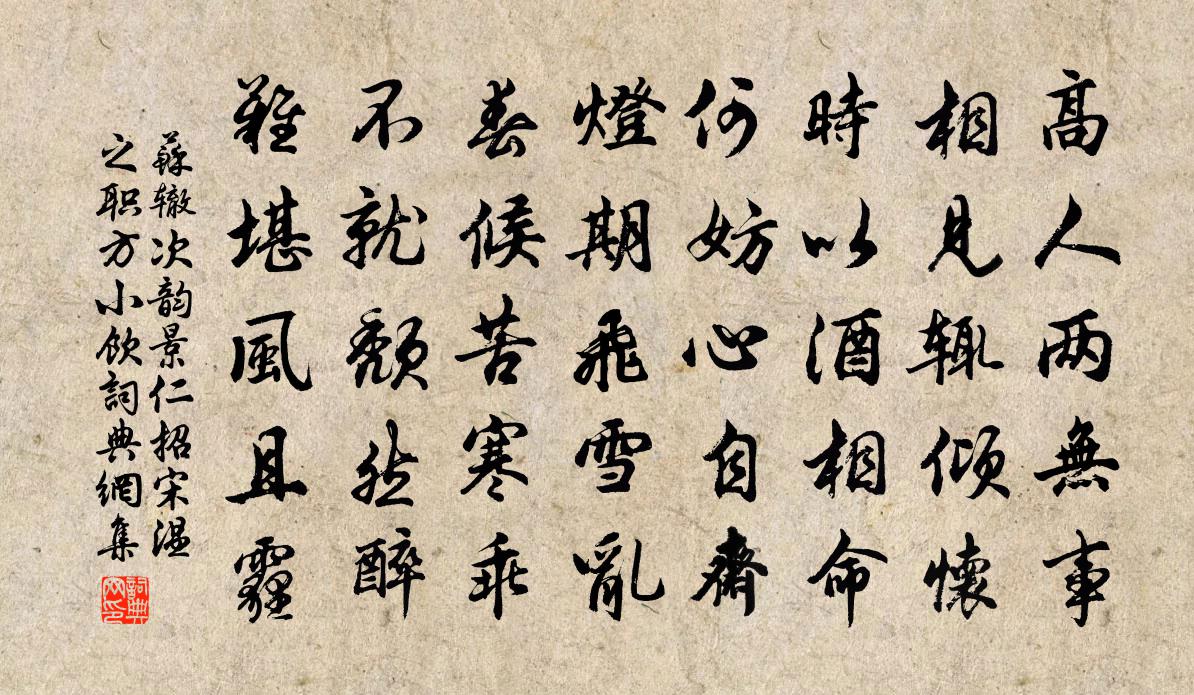 高人两無事
相見輙傾懷
時以酒相命
何妨心自齋
燈期飛雪亂
春候苦寒乖
不就頹然醉
難堪風且霾
蘇辙次韵景仁招宋温
之职方小飲詞典網集
詞典网印